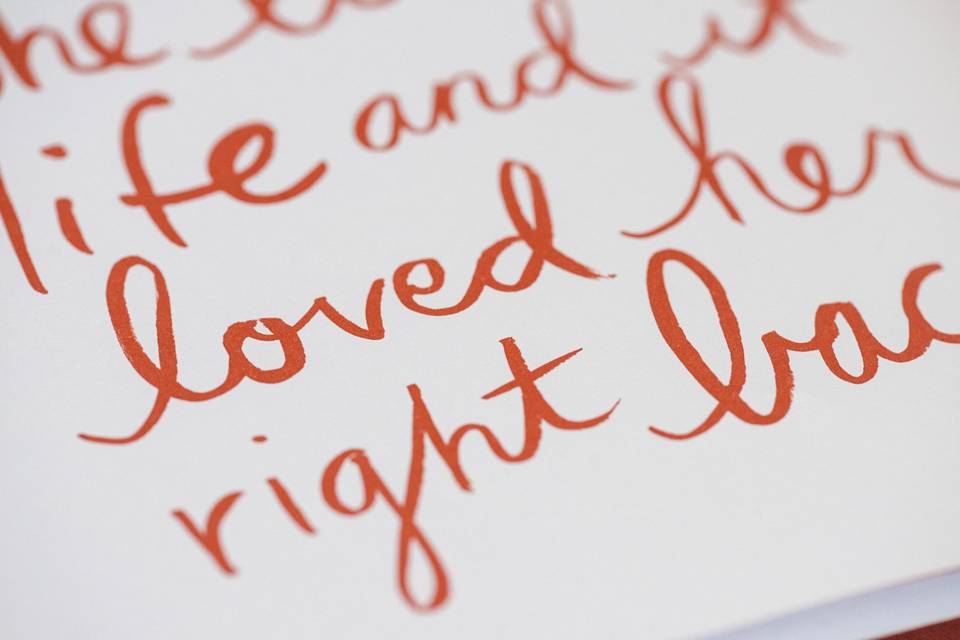 he
life and it
loved her
right bac